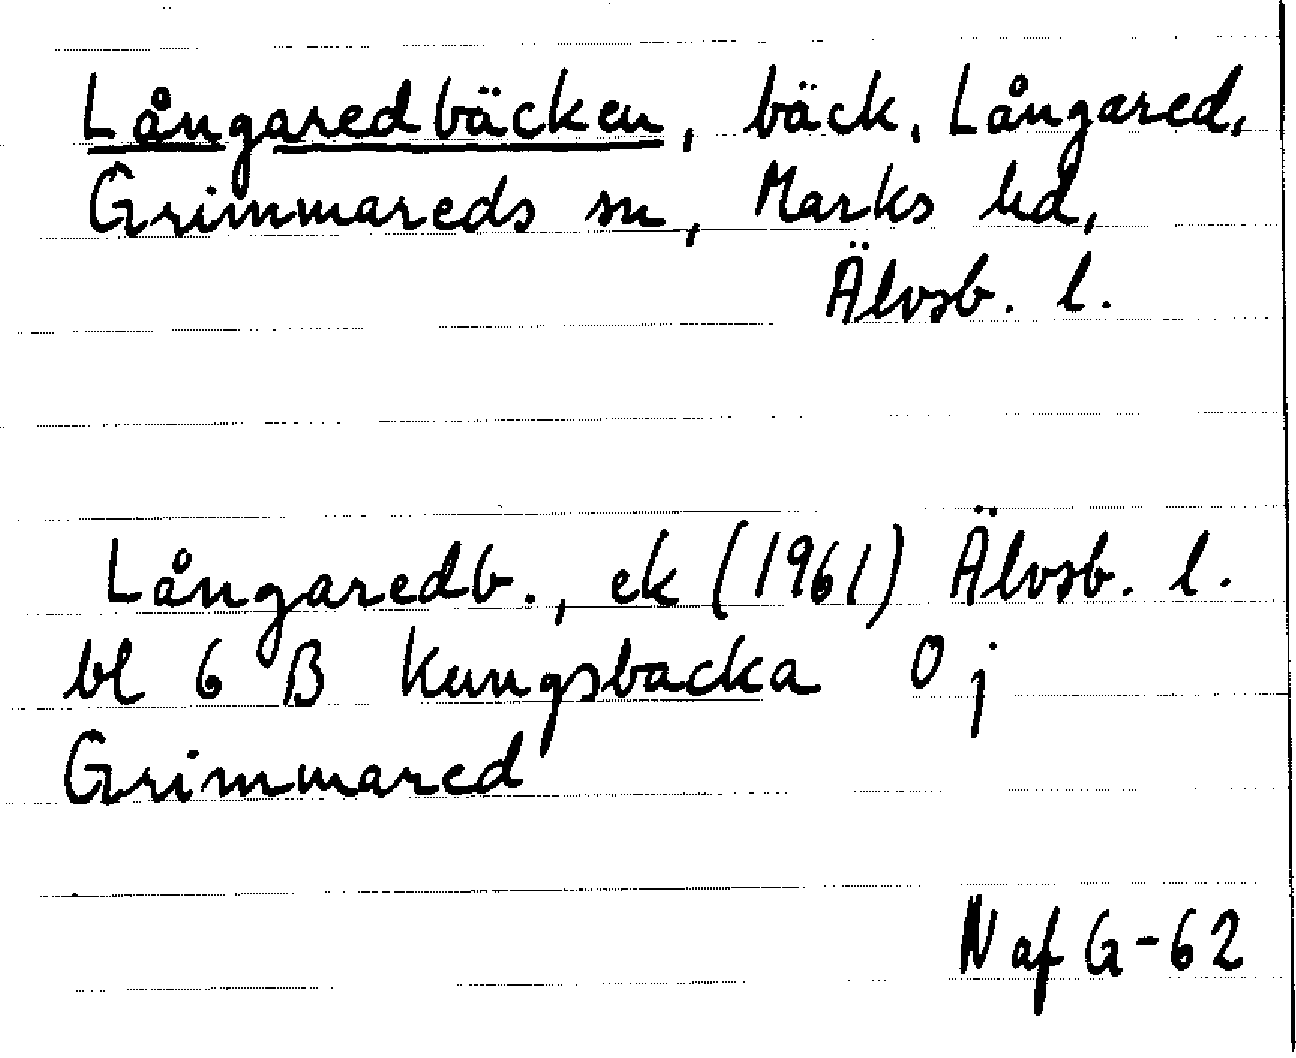 Långaredbäcken, bäck, Långared,
Grimmareds sn, Marks hd,
Älvsb. l.
Långaredb., ek (1961) Älvsb. l.
bl 6 B Kungsbacka 0 j
Grimmared
N af G-62